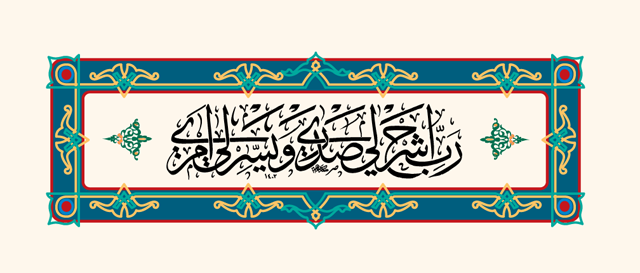 رَبِّ اشْرَحْ لِي صَدْرِي وَيَسِّرْ لِي أَمْرِي
١٤٠٢